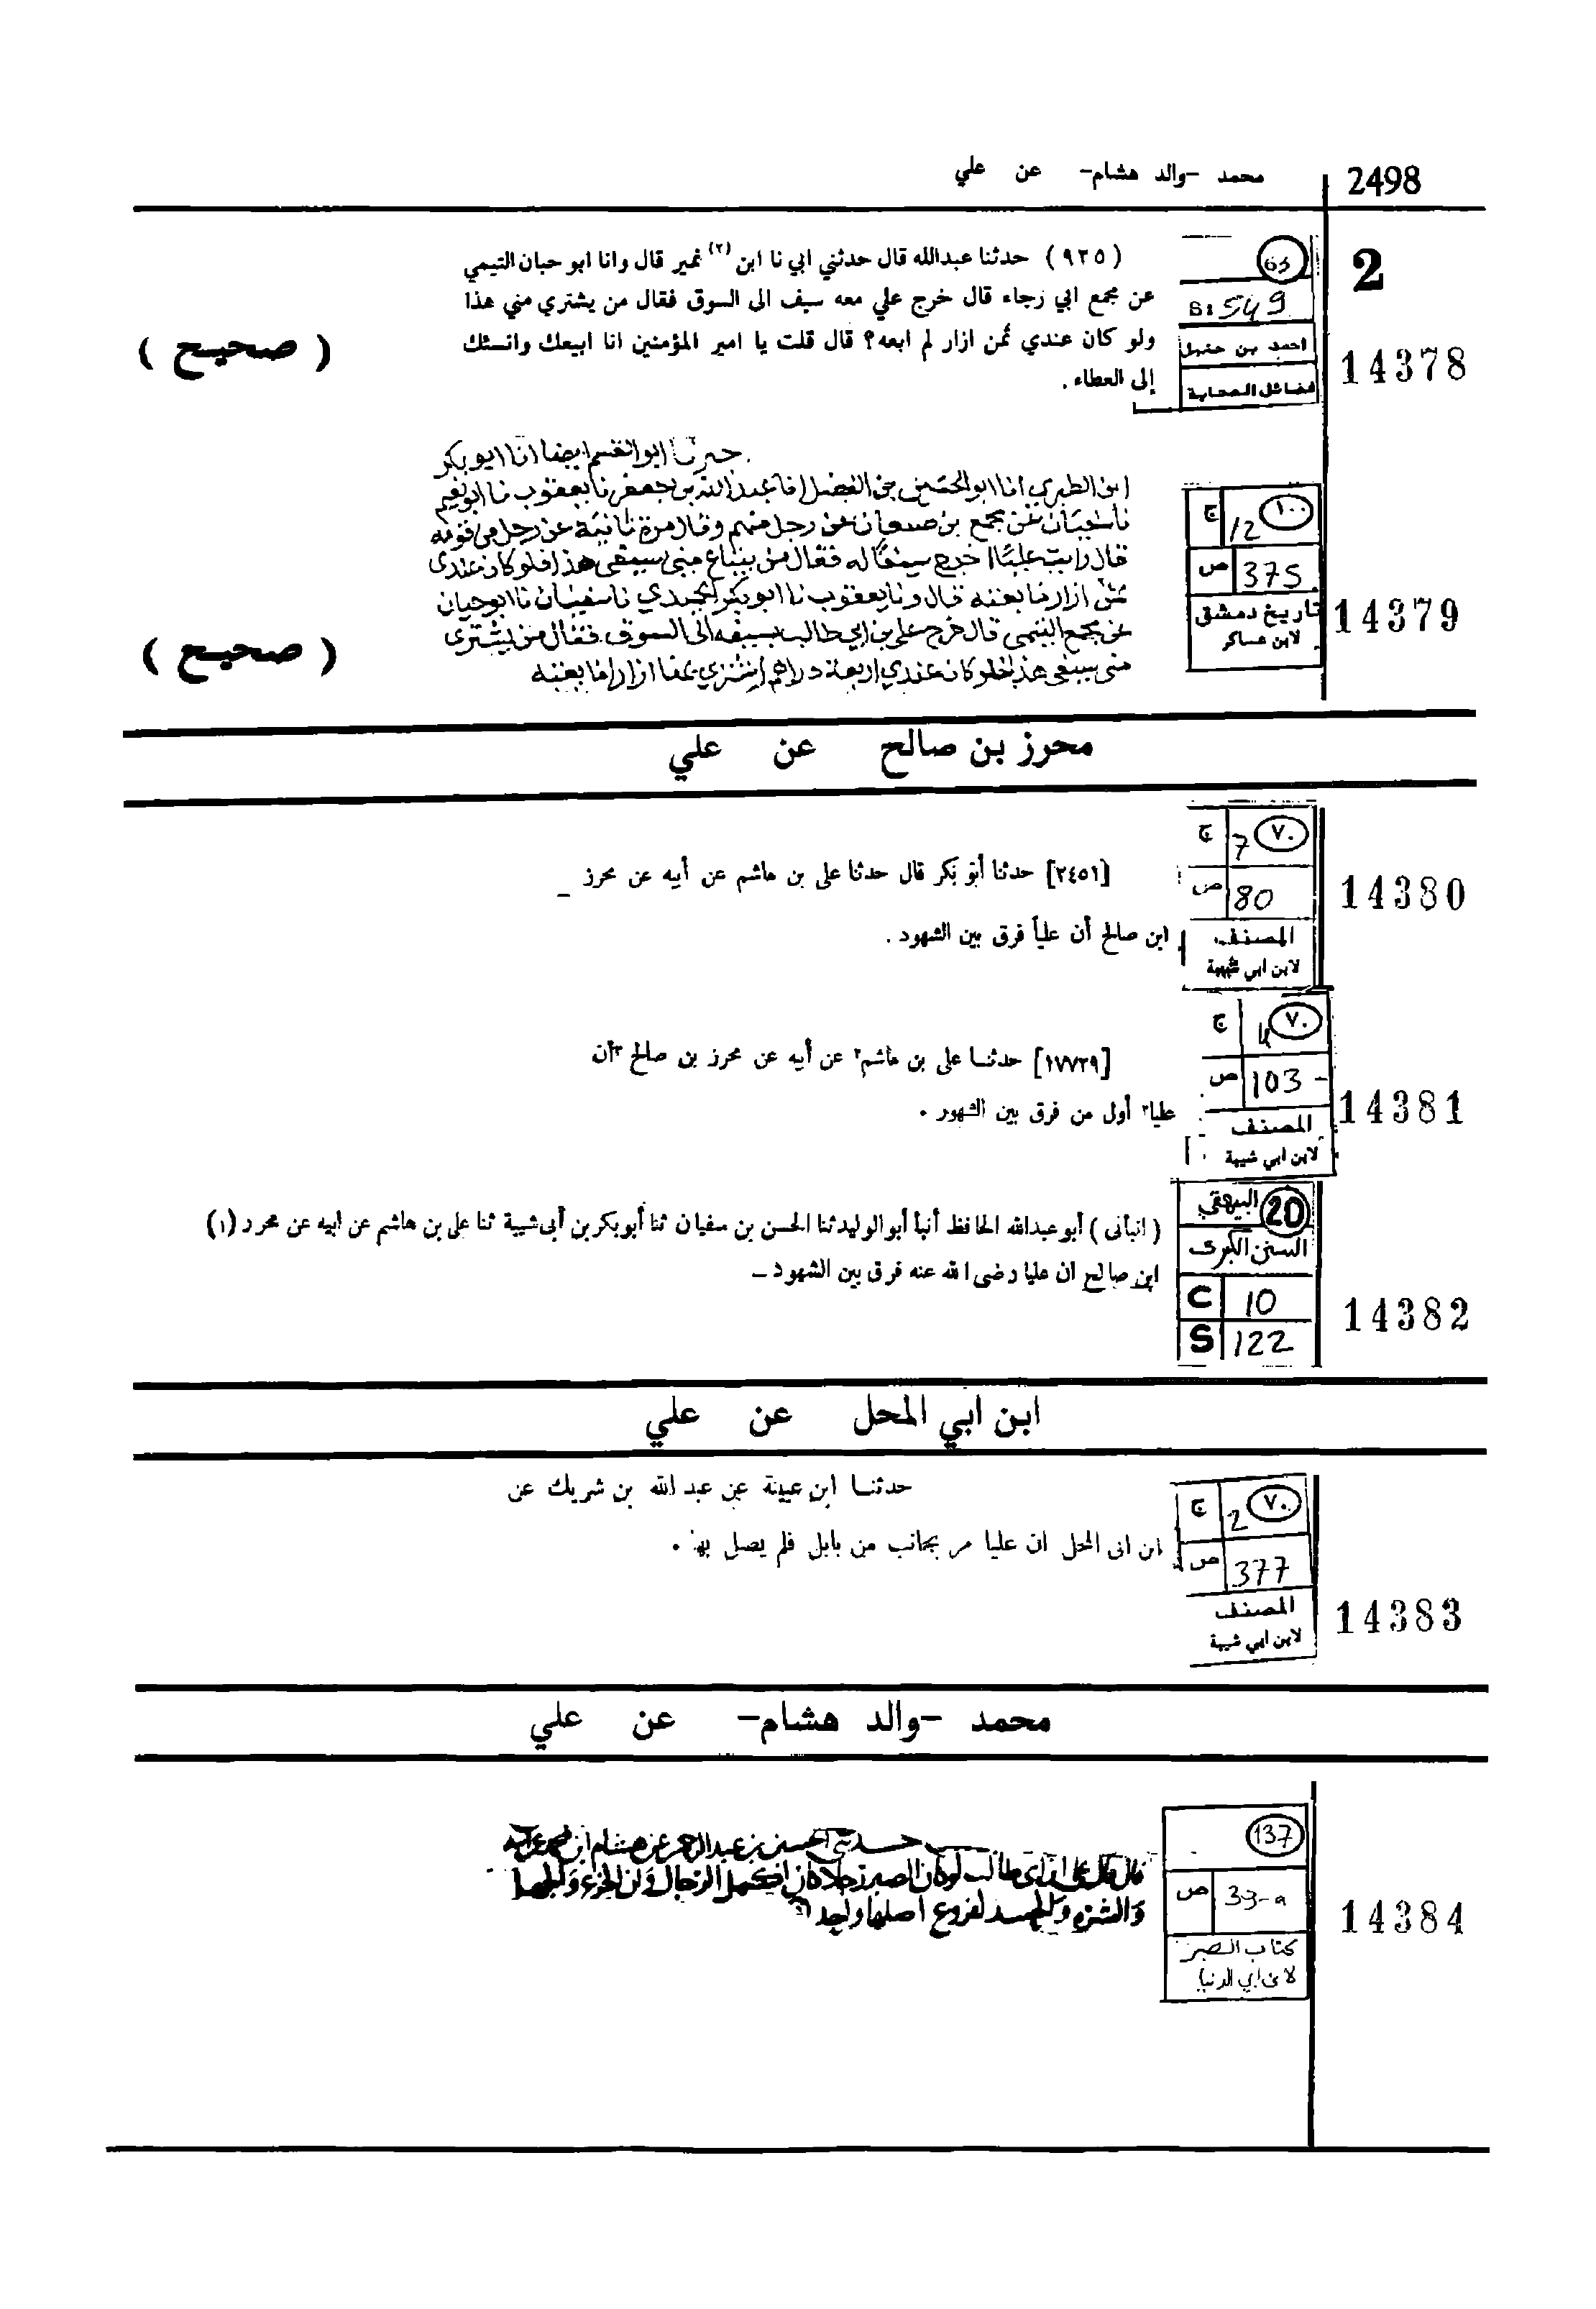 2498
محمد -والد هشام- عن علي
2
63
B: 549
احمد بن حنبل
فضائل الصحابة
14378
(٩٢٥) حدثنا عبدالله قال حدثني ابي نا ابن (٢) نمير قال وانا ابو حيان التيمي
عن مجمع ابي رجاء قال خرج علي معه سيف الى السوق فقال من يشتري مني هذا
ولو كان عندي ثمن ازار لم ابعه؟ قال قلت يا امير المؤمنين انا ابيعك وانسئك
إلى العطاء .
( صحيح )
١٠٠
ج 12
ص 375
تاريخ دمشق
لابن عساكر
14379
ابو القسم ايضا انا ابو بكر
ابن الطبري انا ابو الحسين بن الفضل انا عبد الله بن جعفر نا يعقوب نا ابو نعيم
نا سفيان عن مجمع بن صمعان عن رجل منهم وقال مرة ثانية عن رجل من قومه
قال رايت عليا خرج سيفا له فقال من يبتاع مني سيفي هذا فلو كان عندي
ثمن ازار ما بعته قال ونا يعقوب نا ابو بكر الحميدي نا سفيان نا ابو حيان
عن مجمع التيمي قال خرج علي بن ابي طالب بسيفه الى السوق فقال من يشتري
مني سيفي هذا فلو كان عندي اربعة دراهم اشتري بها ازارا ما بعته
( صحيح )
محرز بن صالح عن علي
٧٠
ج 7
ص 80
المصنف
لابن ابي شيبة
14380
[٢٤٥١] حدثنا أبو بكر قال حدثنا على بن هاشم عن أبيه عن محرز
ابن صالح أن علياً فرق بين الشهود .
٧٠
ج
ص 103
المصنف
لابن ابي شيبة
14381
[١٧٧٣٩] حدثنا على بن هاشم٢ عن أبيه عن محرز بن صالح ٣أن
عليا٣ أول من فرق بين الشهور .
20
البيهقي
السنن الكبرى
C 10
S 122
14382
( انبأنى ) أبو عبدالله الحافظ أنبأ أبو الوليد ثنا الحسن بن سفيان ثنا أبو بكر بن أبى شيبة ثنا على بن هاشم عن ابيه عن محرر (١)
ابن صالح ان عليا رضى الله عنه فرق بين الشهود -
ابن ابي المحل عن علي
٧٠
ج 2
ص 377
المصنف
لابن ابي شيبة
14383
حدثنا ابن عيينة عن عبد الله بن شريك عن
ابن ابى المحل ان عليا مر بجانب من بابل فلم يصل بها .
محمد -والد هشام- عن علي
137
ص 33-a
كتاب الصبر
لابن ابي الدنيا
14384
حدثني الحسين بن عبد الرحمن عن هشام ابن محمد عن ابيه
قال قال علي بن ابي طالب لو كان الصبر رجلا كان اكمل الرجال وان الجزع
والشره والحسد لفروع اصلها واحد